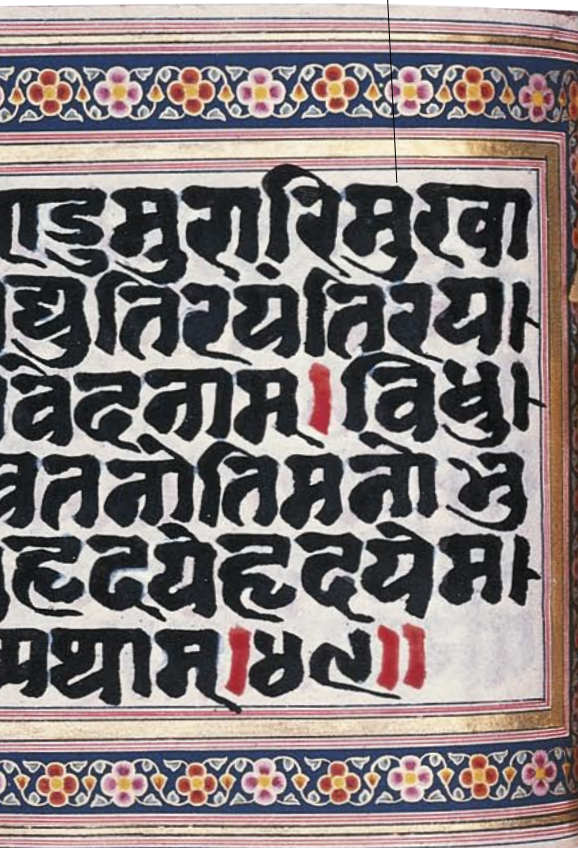 ण्डुमुरारिमुखा
द्युतिरयंतिरया
वेदनाम।विधु।
वतनोतिमनोभु
हृदयेहृदयेमा
व्यथाम।४९॥